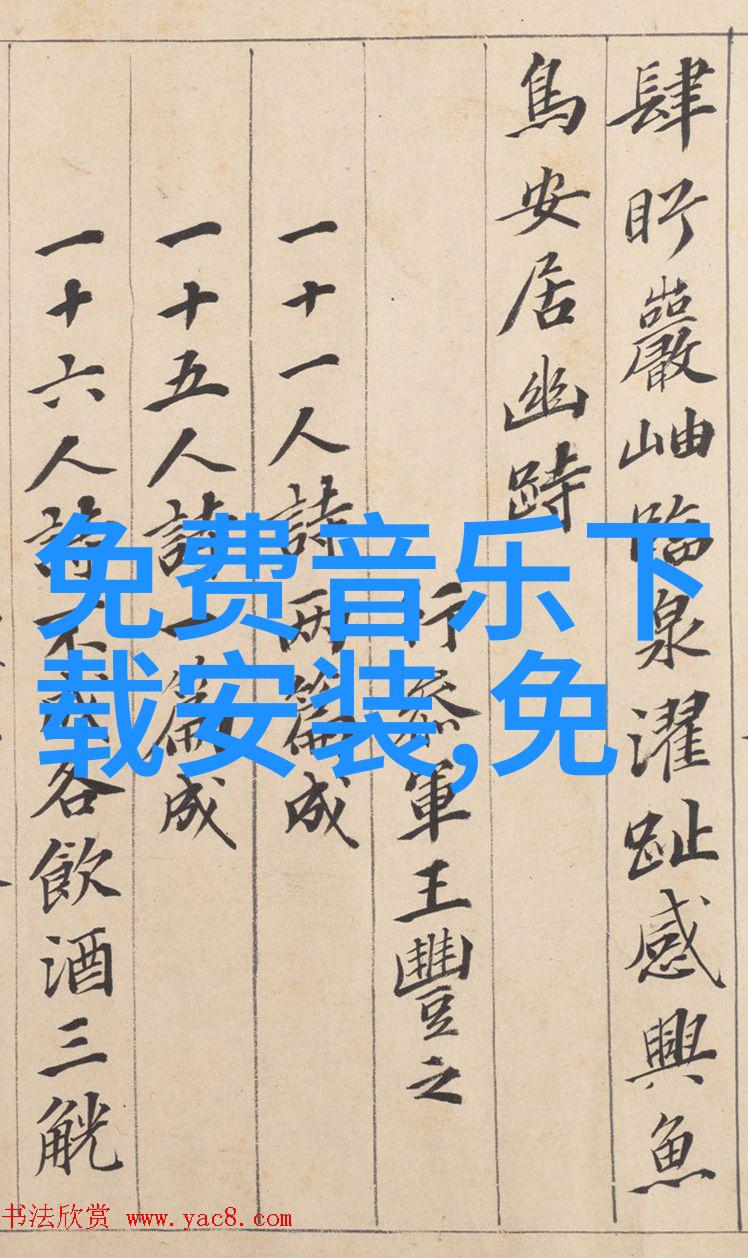 肆眄巖岫臨泉濯趾感興魚
鳥安居幽跱
行參軍王豐之
一十一人詩兩篇成
一十五人詩一篇成
一十六人詩不成各飲酒三觥
免费音乐下
载安装,免
书法欣赏 www.yac8.com